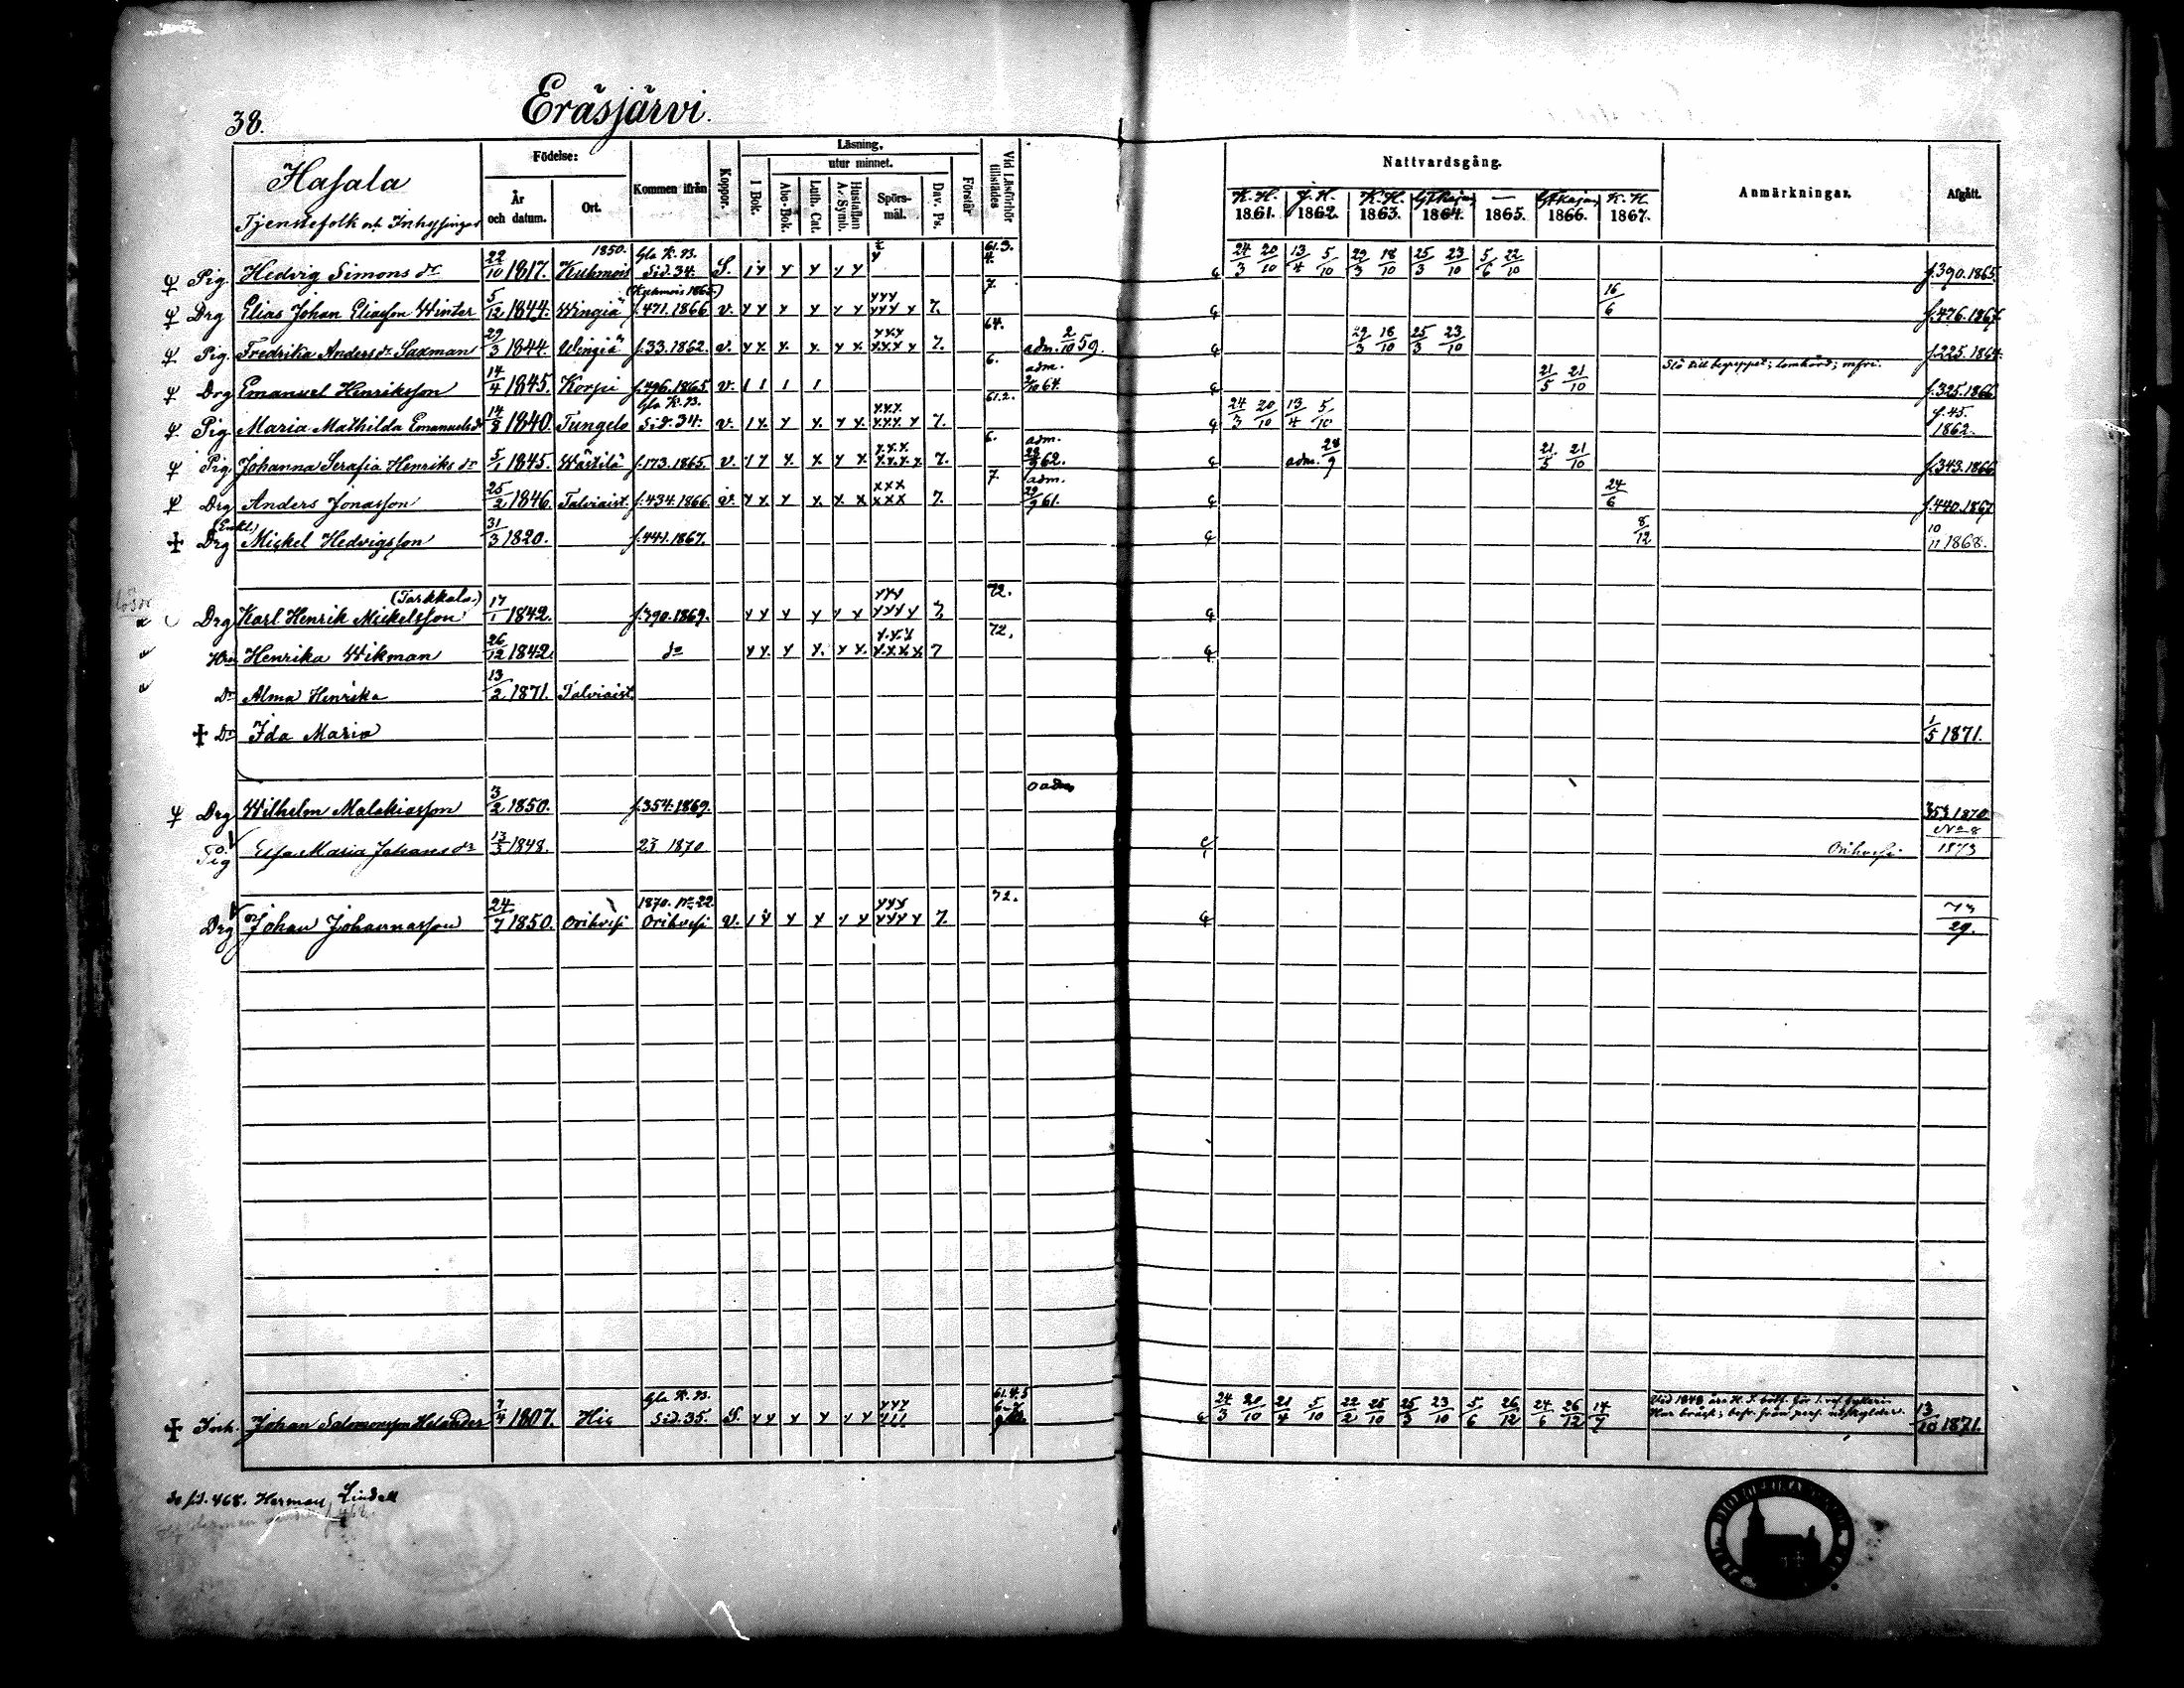 38.
Eräsjärvi.
Hasala
Tjenstefolk och Inhysingar
Födelse:
År och datum.
Ort.
Kommen ifrån
Koppor.
Läsning,
I Bok.
utur minnet.
Abc-Bok.
Luth. Cat.
Hustaflan A. Symb.
Spörsmål.
Dav. Ps.
Förstår
Vid Läsförhör tillstädes
Nattvardsgång.
K. H. 1861. J. H. 1862. K. H. 1863. 1864. — 1865. 1866. K. H. 1867.
Anmärkningar.
Afgått.
Pig. Hedvig Simons dr 22/10 1817. 1850. Kuhmois Gla K. B. Sid. 34. S. 61.3.4. 24/3 20/10 13/4 5/10 29/3 18/10 25/3 23/10 5/6 22/10 f.390.1865.
Drg Elias Johan Eliasson Winter 5/12 1844. Wingiä (Kuhmois 1865.) f.471.1866 v. 7. 7. 16/6 f.476.1867.
Pig. Fredrika Anders dr Saxman 29/3 1844. Wingiä f.33.1862. v. 7. 64. adm. 2/10 59. 29/3 18/10 25/3 23/10 f.225.1864.
Drg Emanuel Henriksson 14/4 1845. Korpi f.496.1865 v. 6. adm. 2/10 64. 21/5 21/10 Slö till begreppet; lomhörd; mfri. f.325.1866
Pig. Maria Mathilda Emanuels dr 14/3 1840. Tungelo Gla K. B. Sid. 34. v. 7. 61.2. 24/3 20/10 13/4 5/10 f.45. 1862.
Pig. Johanna Serafia Henriks dr 5/1 1845. Wästilä f.173.1865. v. 7. 6. adm. 28/9 62. adm. 28/9 21/5 21/10 f.343.1866
Drg Anders Jonasson 25/2 1846. Talviaist. f.434.1866. v. 7. 7. adm. 29/9 61. 24/6 f.440.1867
(Enkl.) Drg Mickel Hedvigsson 31/3 1820. f.441.1867. 8/12 10/11 1868.
(Tarkkala.)
Drg Karl Henrik Mickelsson 17/1 1842. f.390.1869. 7. 72.
Hru Henrika Wikman 26/12 1842. do 7 72.
Dr Alma Henrika 13/2 1871. Talviaist.
Dr Ida Maria 1/5 1871.
Drg Wilhelm Malakiasson 3/2 1850. f.354.1869. oadm 353 1870
Pig Eva Maria Johans dr 13/3 1848. 23 1870 Orihvesi No 8 1873
Drg Johan Johannasson 24/7 1850. Orihvesi 1870. No 22. Orihvesi v. 7. 72. 73 29.
Inh. Johan Salomonsson Helander 7/4 1807. Hie Gla K. B. Sid. 35. S. 24/3 20/10 21/4 5/10 22/2 25/10 25/3 23/10 5/6 26/12 24/6 26/12 14/7 Har bråck; befr. från pers. utskylder. 13/10 1871.
se sid. 468. Herman Lindell